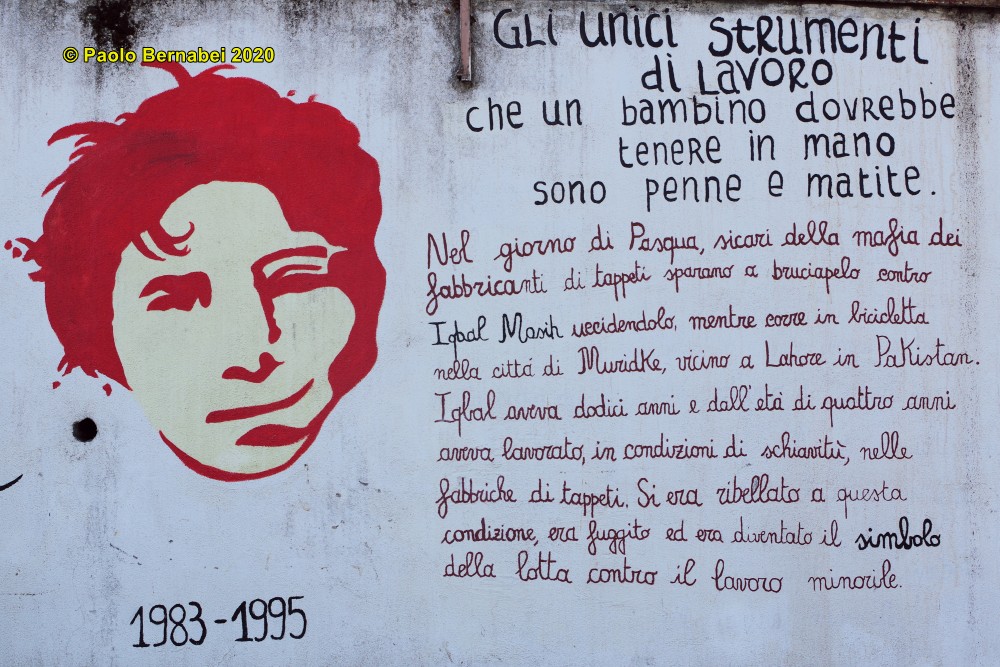 © Paolo Bernabei 2020
GLi unici STRUMENTi
di LAVORO
che un bambino dovrebbe
tenere in mano
sono penne e matite.
Nel giorno di Pasqua, sicari della mafia dei
fabbricanti di tappeti sparano a bruciapelo contro
Iqbal Masih uccidendolo, mentre corre in bicicletta
nella cittá di Muridke, vicino a Lahore in Pakistan.
Iqbal aveva dodici anni e dall'etá di quattro anni
aveva lavorato, in condizioni di schiavitù, nelle
fabbriche di tappeti. Si era ribellato a questa
condizione, era fuggito ed era diventato il simbolo
della lotta contro il lavoro minorile.
1983-1995